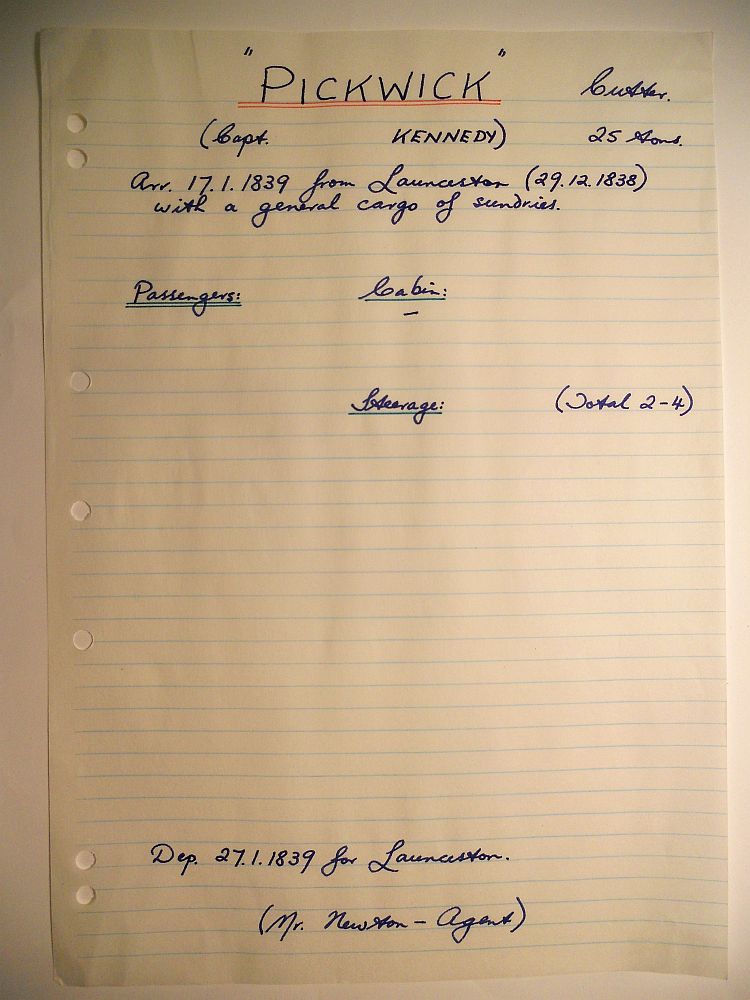 "PICKWICK" Cutter.
(Capt. KENNEDY) 25 tons.
Arr. 17.1.1839 from Launceston (29.12.1838)
with a general cargo of sundries.
Passengers: Cabin:
–
Steerage: (Total 2-4)
Dep. 27.1.1839 for Launceston.
(Mr. Newton - Agent)